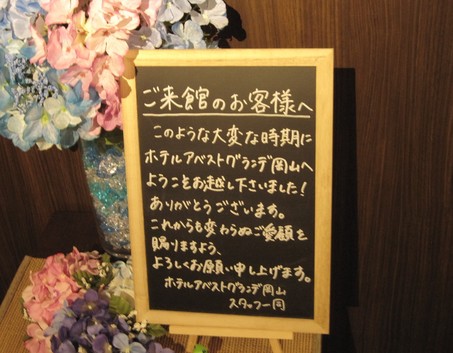 ご来館のお客様へ
このような大変な時期に
ホテルアベストグランデ岡山へ
ようこそお越し下さいました!
ありがとうございます。
これからも変わらぬご愛顧を
賜りますよう、
よろしくお願い申し上げます。
ホテルアベストグランデ岡山
スタッフ一同